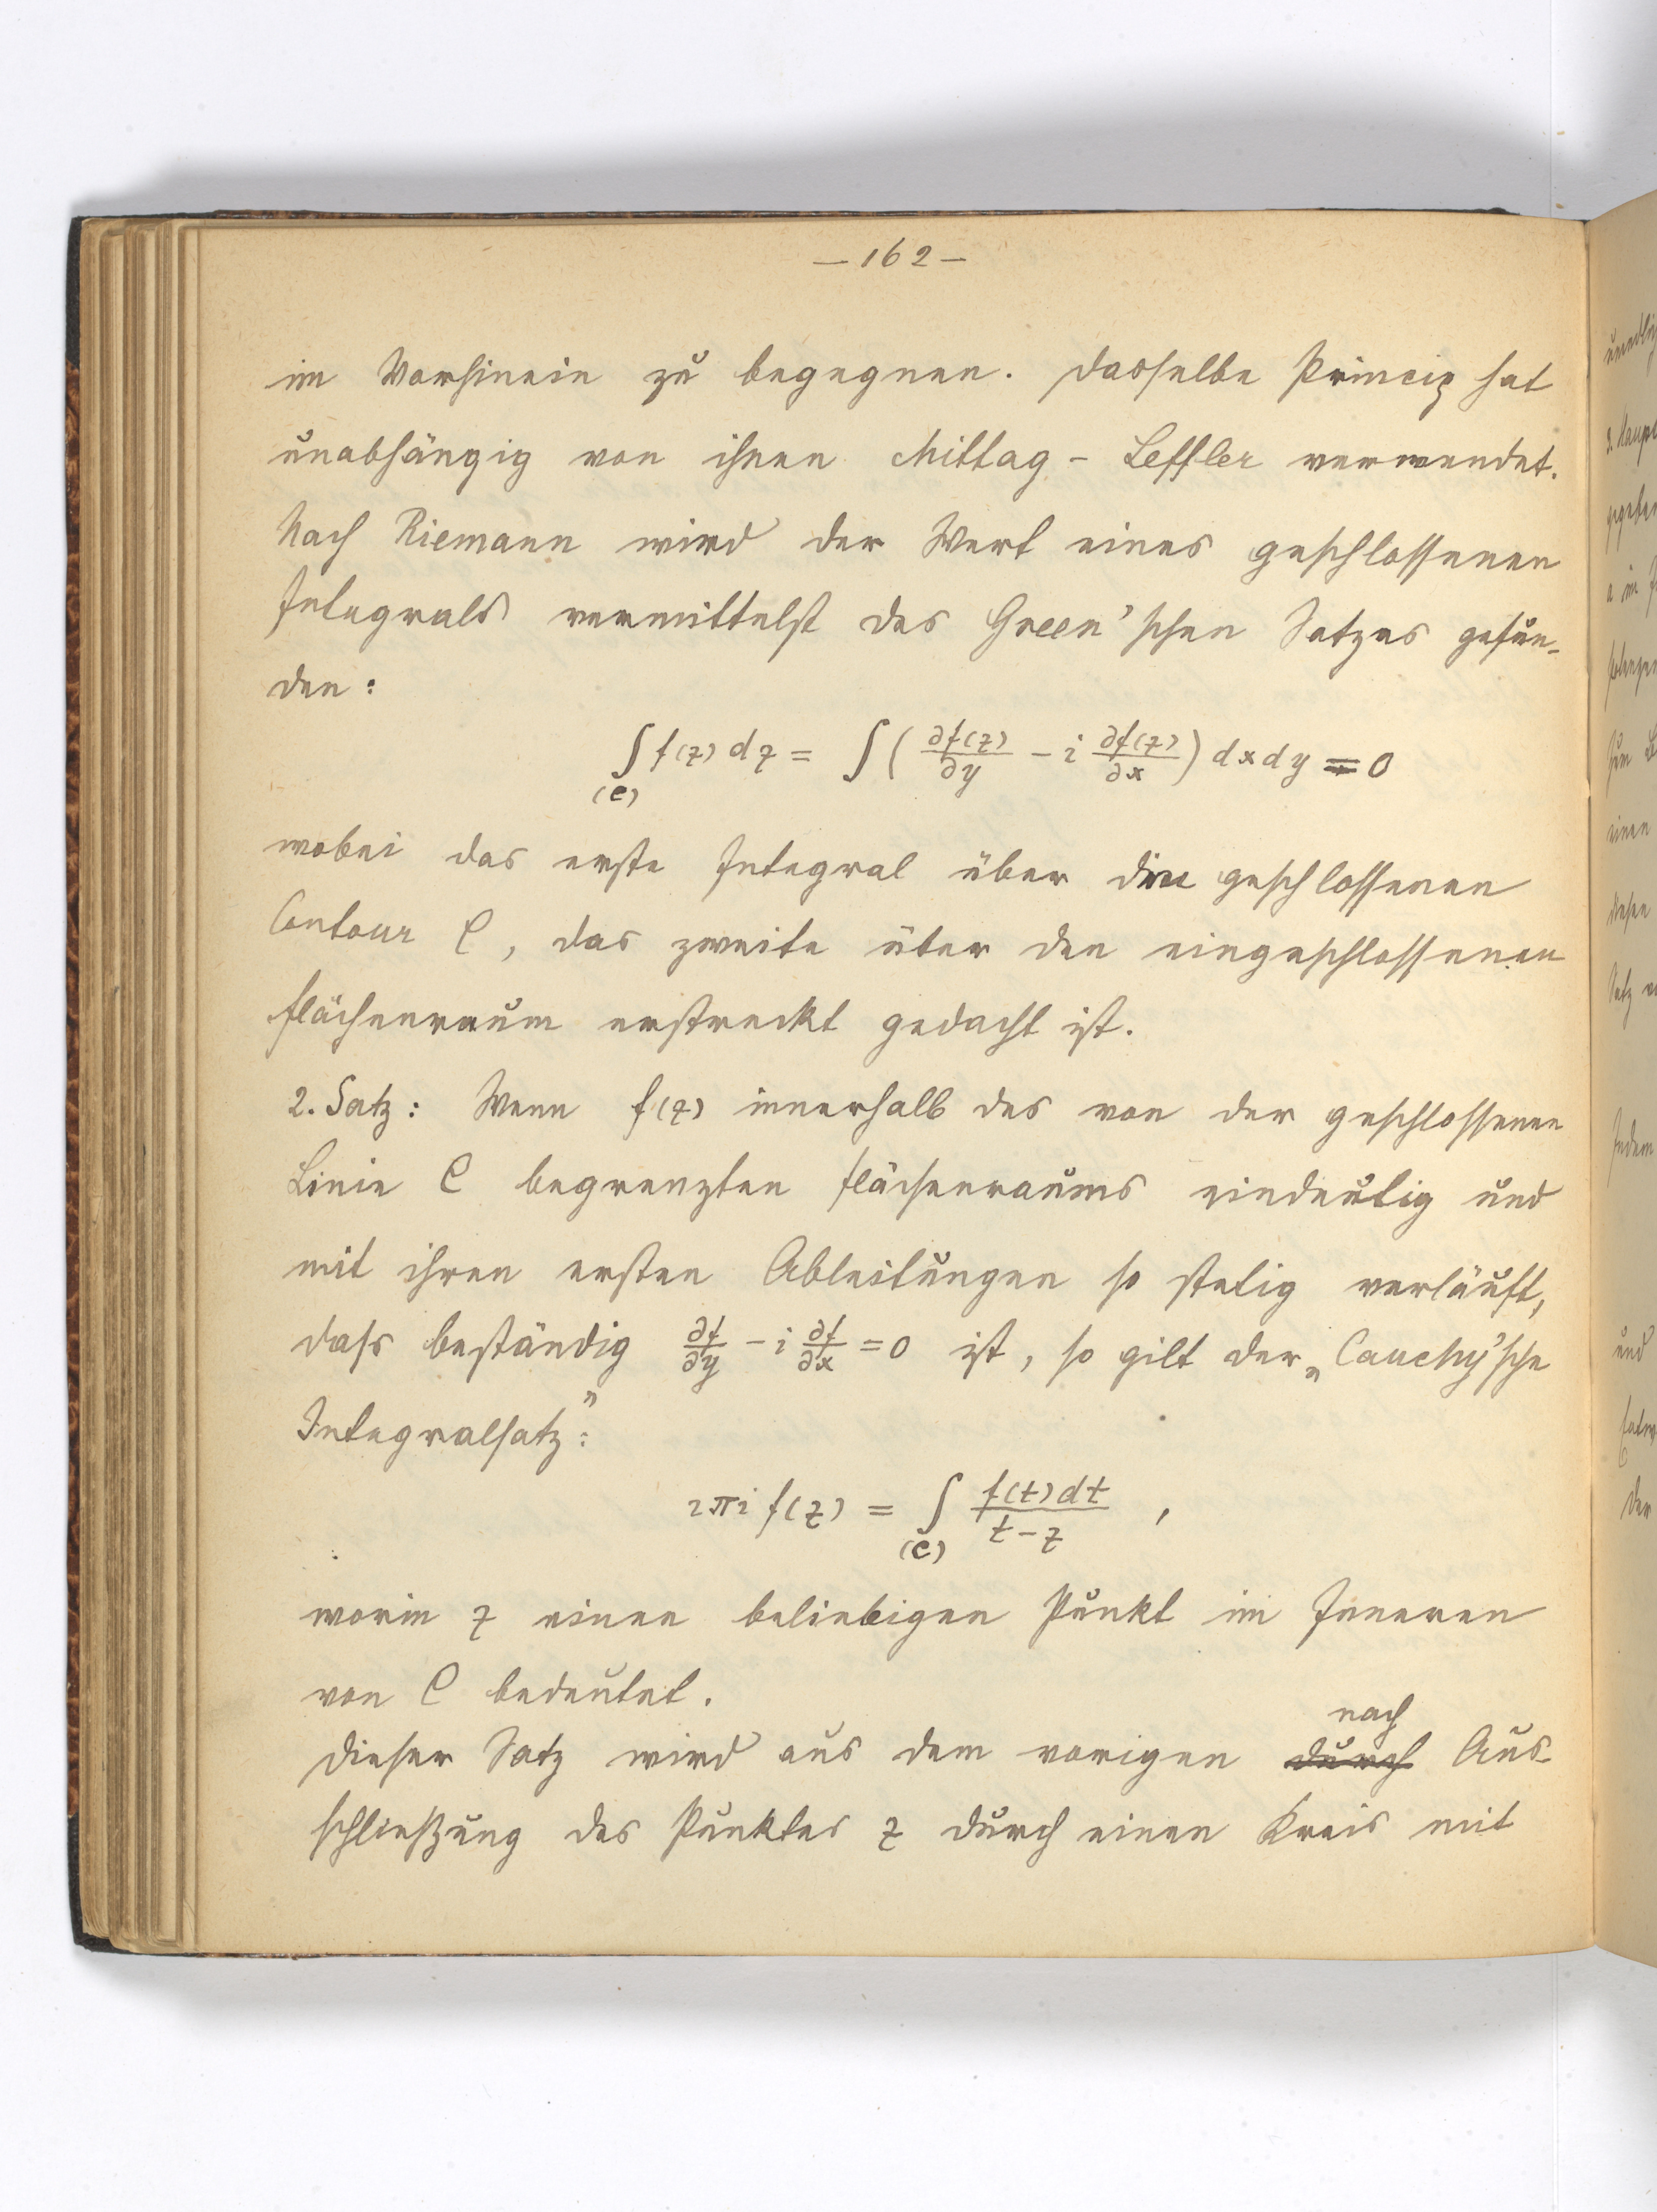 — 162 —
im Vorhinein zu begegnen. Dasselbe Princip hat
unabhängig von ihnen Mittag - Leffler verwendet.
Nach Riemann wird der Wert eines geschlossenen
Integrals vermittelst des Green'schen Satzes gefun-
den:
∫(C) f(z) dz = ∫ ( ∂f(z)/∂y − i ∂f(z)/∂x ) dx dy = 0
wobei das erste Integral über die geschlossenen
Contour C, das zweite über den eingeschlossenen
Flächenraum erstreckt gedacht ist.
2. Satz: Wenn f(z) innerhalb des von der geschlossenen
Linie C begrenzten Flächenraums eindeutig und
mit ihren ersten Ableitungen so stetig verläuft,
dass beständig ∂f/∂y − i ∂f/∂x = 0 ist, so gilt der „Cauchy'sche
Integralsatz":
2πi f(z) = ∫(C) f(t) dt / t − z ,
worin z einen beliebigen Punkt im Inneren
von C bedeutet.
nach
Dieser Satz wird aus dem vorigen durch Aus-
schließung des Punktes z durch einen Kreis mit